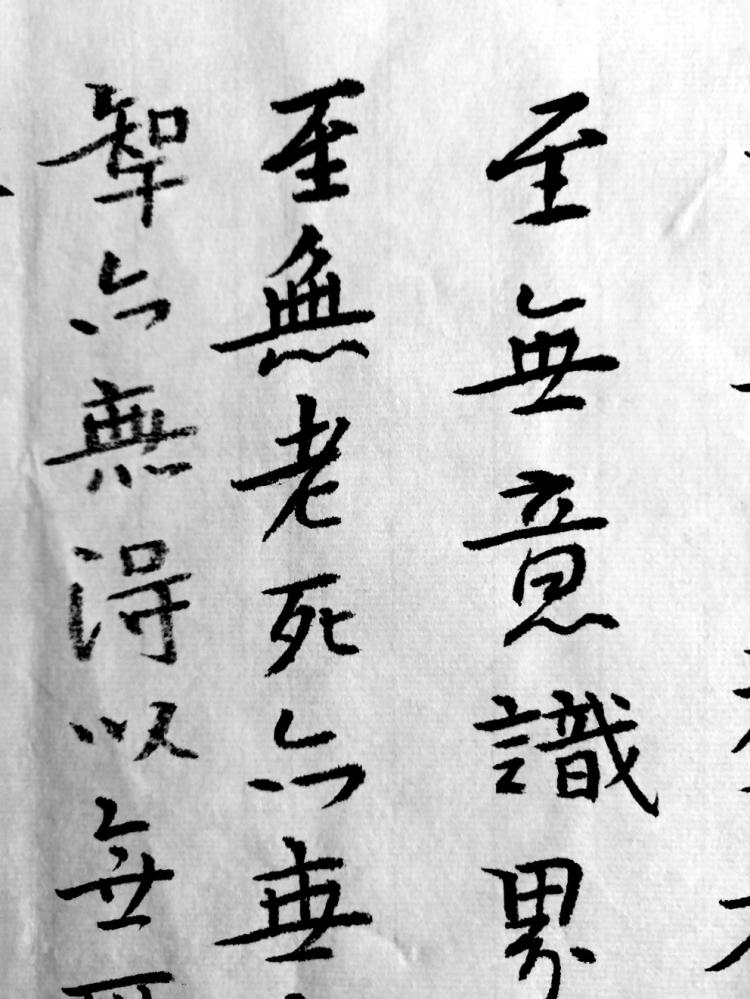 至無意識界
至無老死亦無
智亦無得以無所